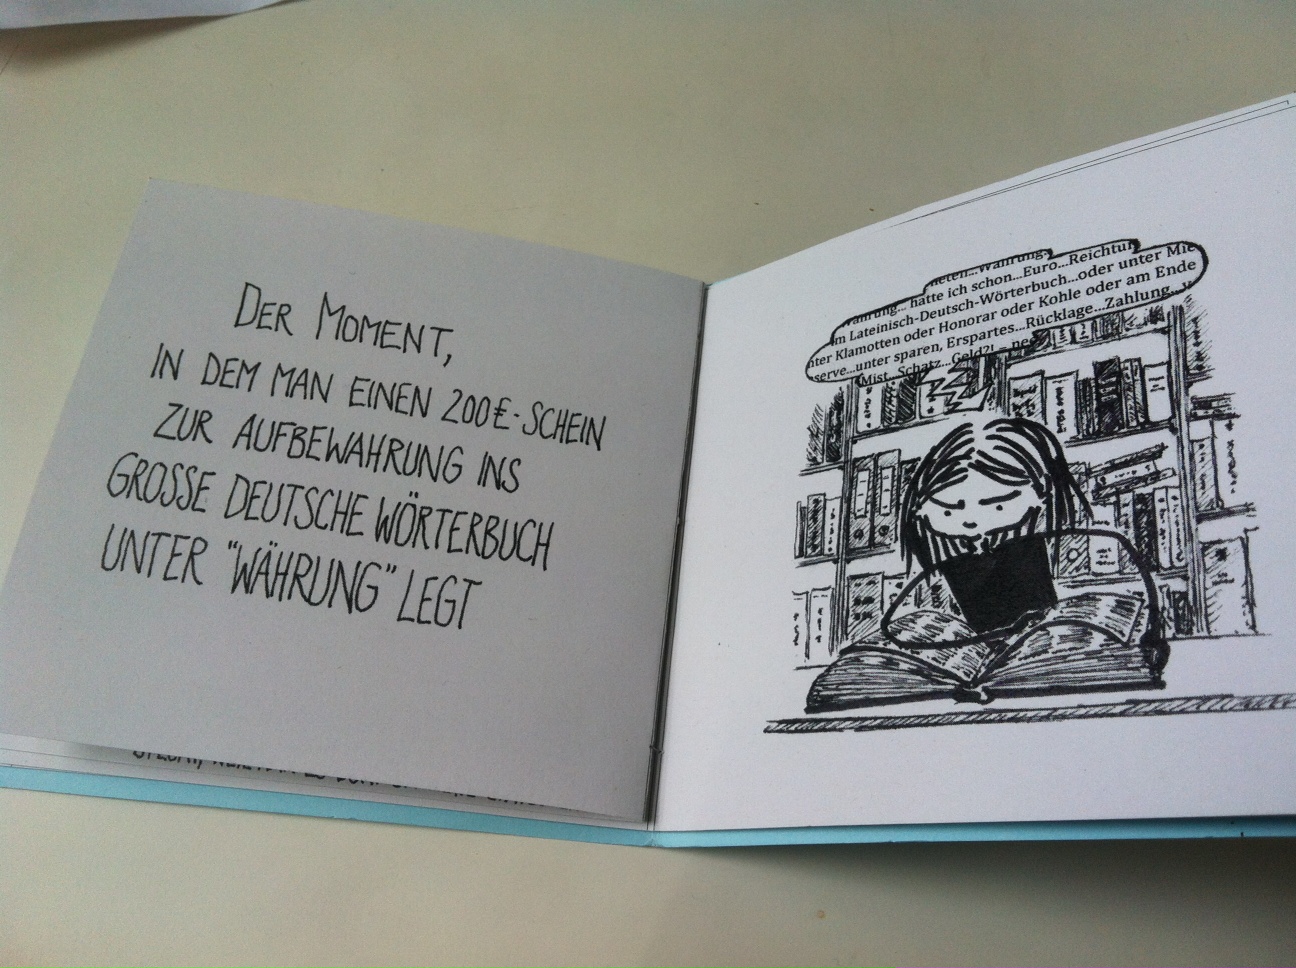 DER MOMENT,
IN DEM MAN EINEN 200€-SCHEIN
ZUR AUFBEWAHRUNG INS
GROSSE DEUTSCHE WÖRTERBUCH
UNTER "WÄHRUNG" LEGT
...Währung.
hätte ich schon...Euro...Reichtu
m Lateinisch-Deutsch-Wörterbuch...oder unter Mie
nter Klamotten oder Honorar oder Kohle oder am Ende
serve...unter sparen, Erspartes...Rücklage...Zahlung...
Mist...Schatz...Geld?! – ne